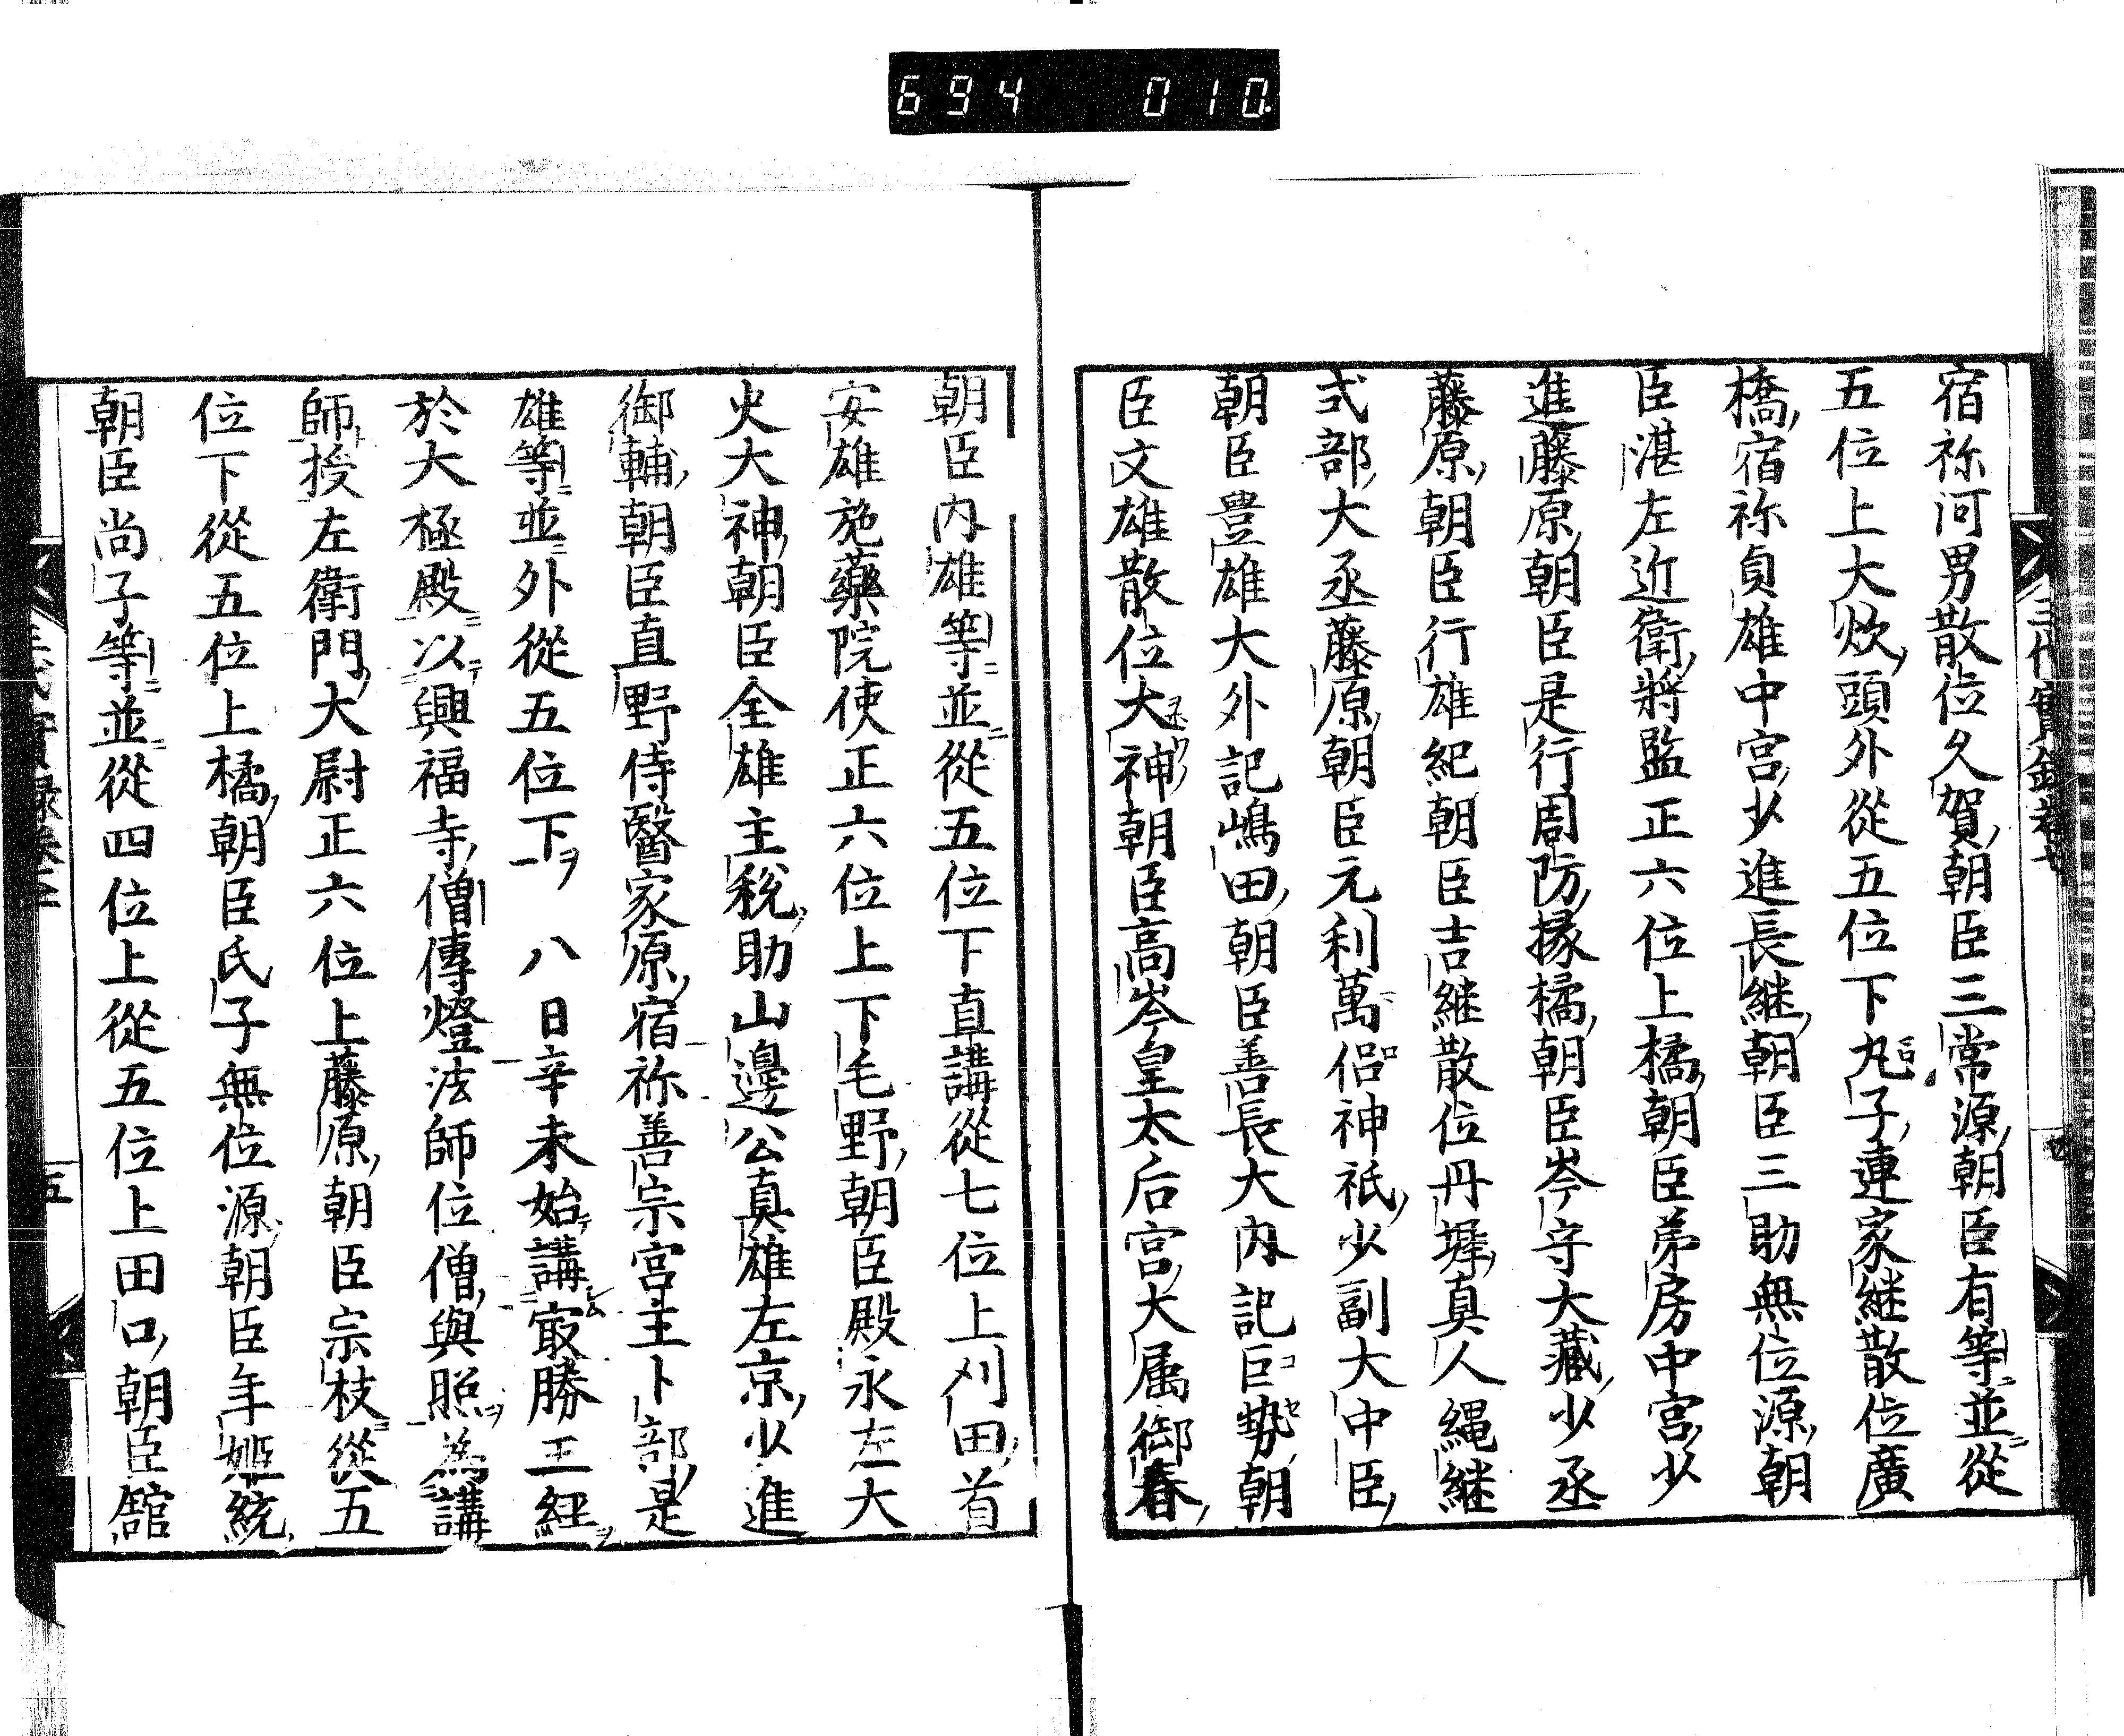 694 010
宿祢河男散位久賀朝臣三常源朝臣有等並從
五位上大炊頭外從五位下丸子連家継散位廣
橋宿祢貞雄中宮少進長継朝臣三助無位源朝
臣湛左近衛將監正六位上橘朝臣弟房中宮少
進藤原朝臣是行周防掾橘朝臣岑守大藏少丞
藤原朝臣行雄紀朝臣吉継散位丹墀真人縄継
式部大丞藤原朝臣元利萬侶神祇少副大中臣
朝臣豊雄大外記嶋田朝臣善長大内記巨勢朝
臣文雄散位大神朝臣高岑皇太后宮大属御春
朝臣内雄等並從五位下直講從七位上刈田首
安雄施藥院使正六位上下毛野朝臣殿永左大
史大神朝臣全雄主税助山邊公真雄左京少進
御輔朝臣直野侍醫家原宿祢善宗宮主卜部是
雄等並外從五位下ヲ 八日辛未始講㝡勝王經
於大極殿以興福寺僧傳燈法師位僧與照為講
師授左衛門大尉正六位上藤原朝臣宗枝從五
位下從五位上橘朝臣氏子無位源朝臣年姫統
朝臣尚子等並從四位上從五位上田口朝臣舘
五